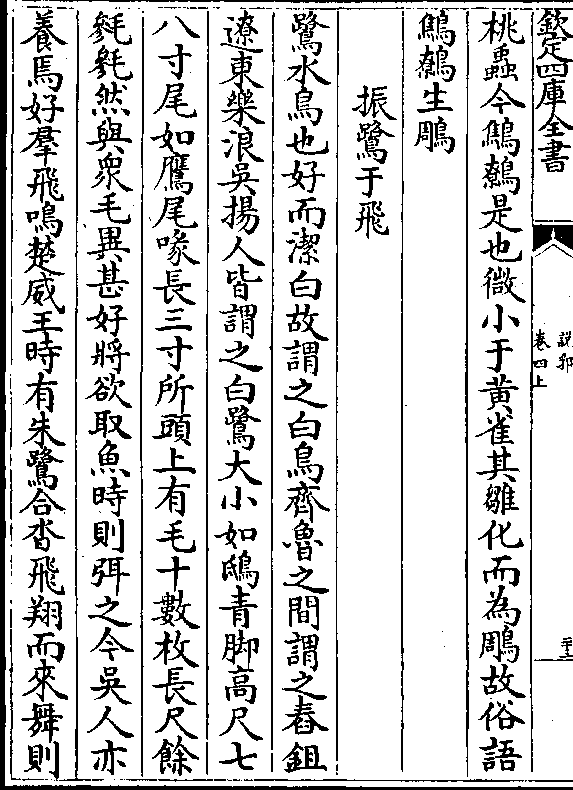 欽定四庫全書
說郛
卷四上
二十三
桃蟲今鷦鷯是也微小于黄雀其雛化而為鵰故俗語
鷦鷯生鵰
振鷺于飛
鷺水鳥也好而潔白故謂之白鳥齊魯之間謂之舂鉏
遼東樂浪吳揚人皆謂之白鷺大小如鴟青脚高尺七
八寸尾如鷹尾喙長三寸所頭上有毛十數枚長尺餘
毿毿然與衆毛異甚好將欲取魚時則弭之今吳人亦
養馬好羣飛鳴楚威王時有朱鷺合沓飛翔而來舞則